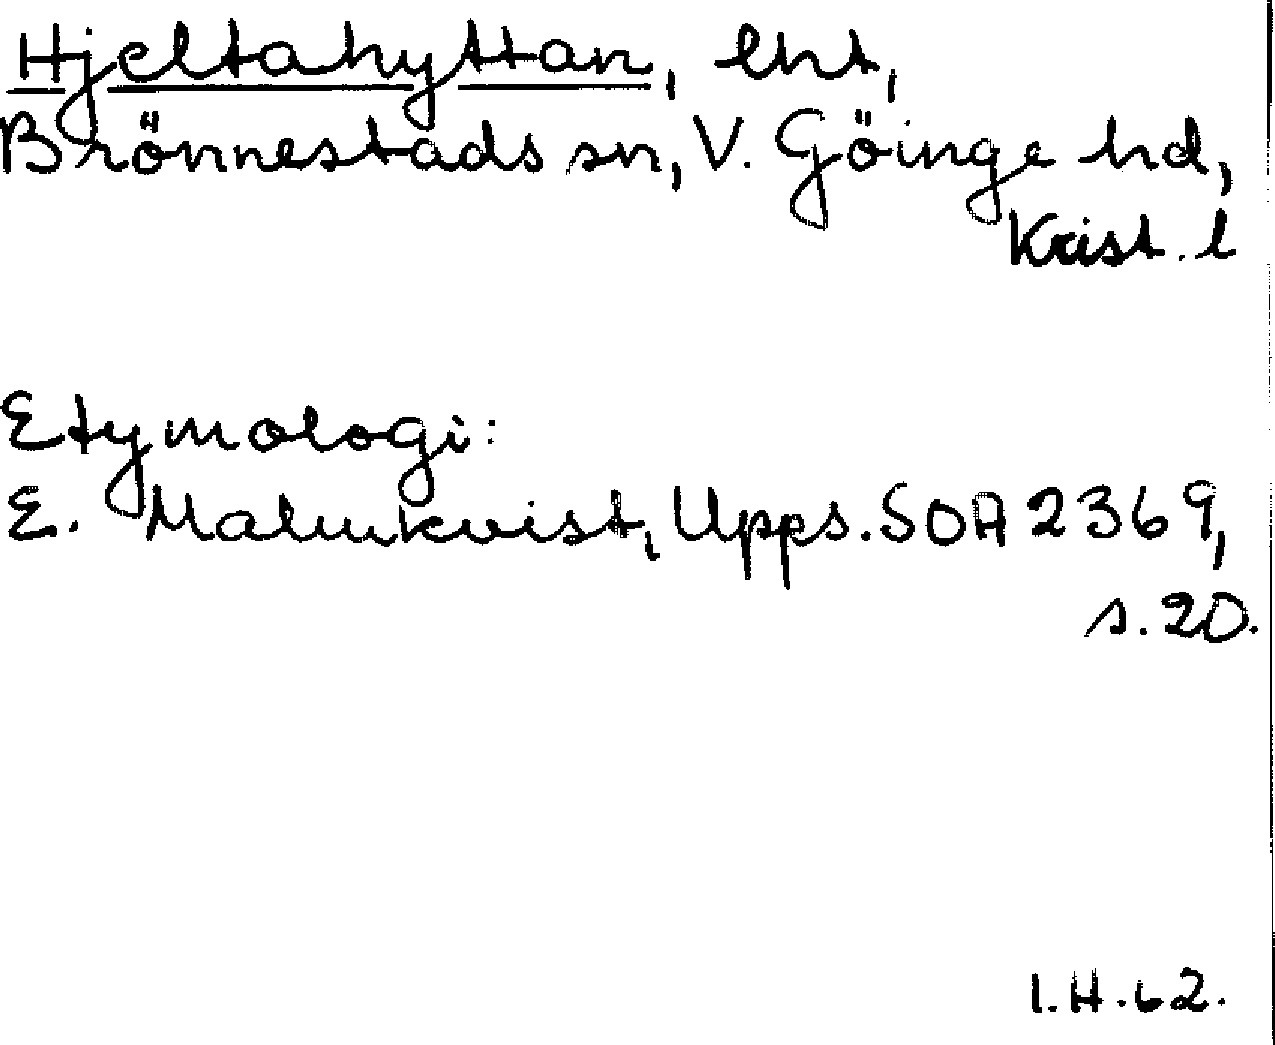 Hjeltahyttan, lht,
Brönnestads sn, V. Göinge hd,
Krist. l
Etymologi:
E. Malmkvist, Upps. SOA 2369,
s. 20.
I.H.62.